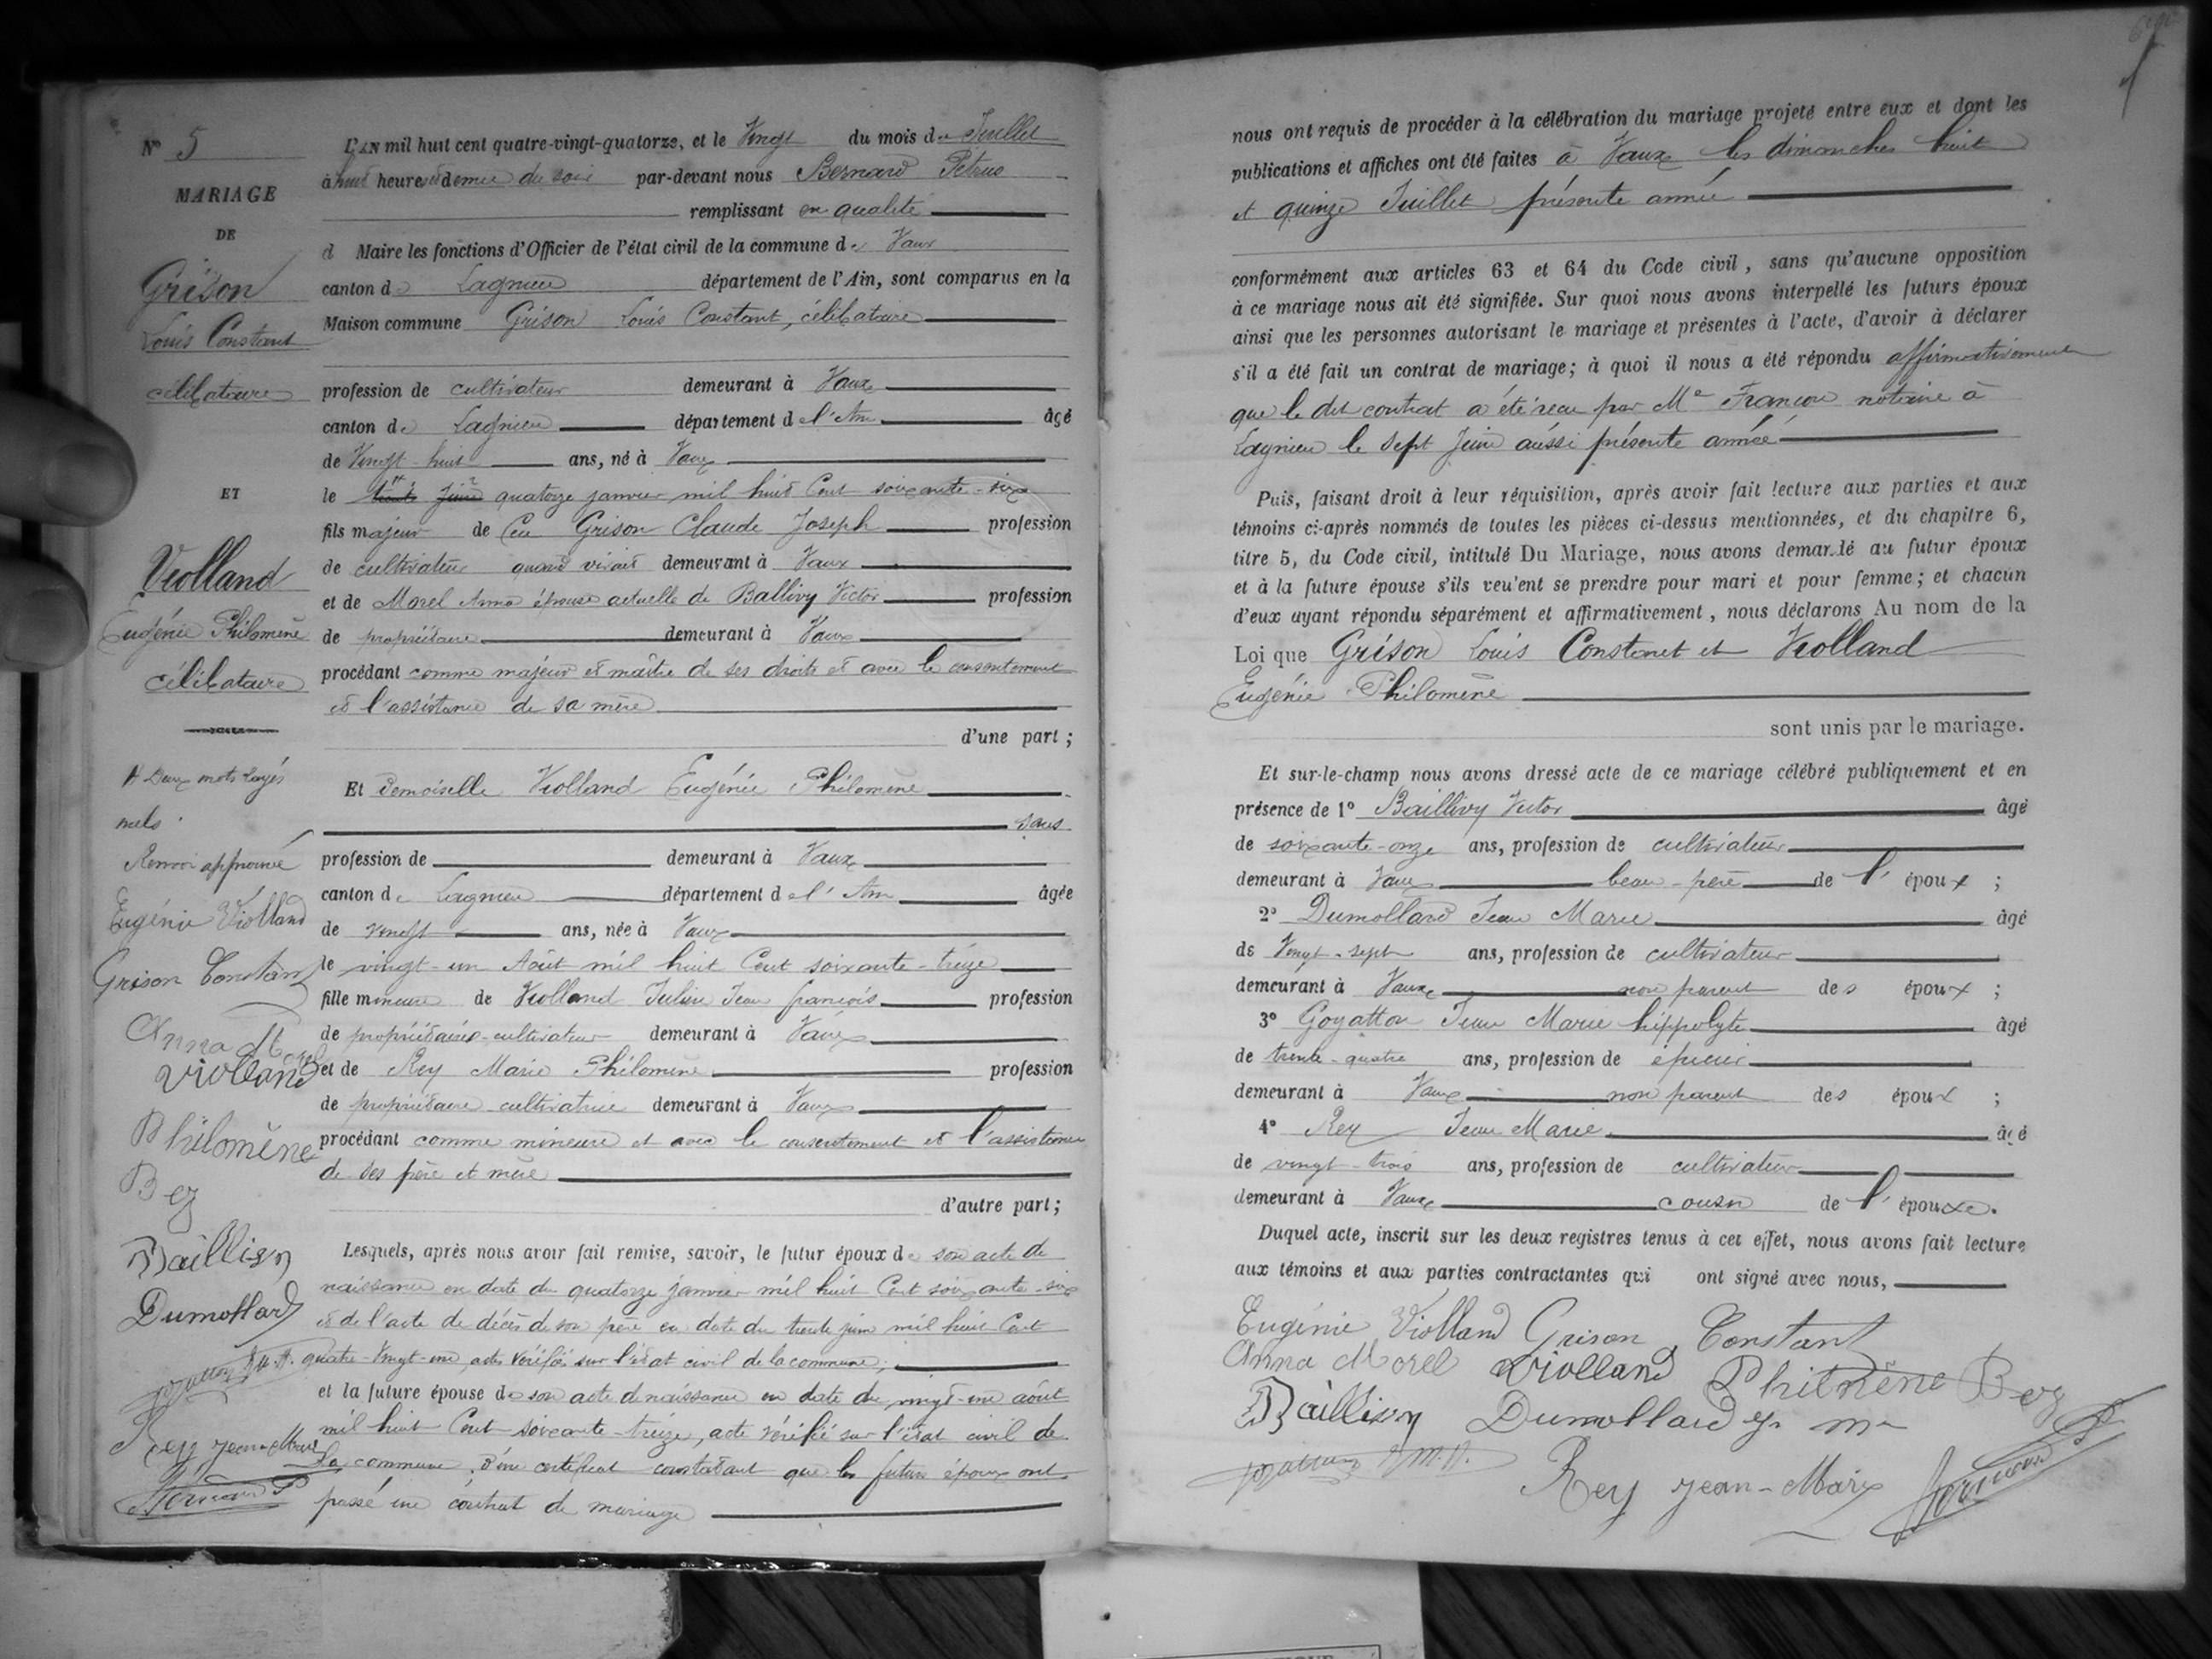 N° 5
MARIAGE
DE
Grison
Louis Constant
célibataire
ET
Violland
Eugénie Philomène
célibataire
Deux mots rayés
nuls.
Renvoi approuvé
Eugénie Violland
Grison Constant
Anna Morel
Violland
Philomène
Rey
Baillivy
Dumollard
Goyatton J. M. H.
Rey Jean-Marie
Bernard P
L'AN mil huit cent quatre-vingt-quatorze, et le Vingt du mois de Juillet
à huit heures et demie du soir par-devant nous Bernard Pétrus
remplissant en qualité
d Maire les fonctions d'Officier de l'état civil de la commune de Vaux
canton de Lagnieu département de l'Ain, sont comparus en la
Maison commune Grison Louis Constant, célibataire
profession de cultivateur demeurant à Vaux
canton de Lagnieu département de l'Ain âgé
de Vingt-huit ans, né à Vaux
le quatorze janvier mil huit Cent soixante-six
fils majeur de feu Grison Claude Joseph profession
de cultivateur quand vivait demeurant à Vaux
et de Morel Anna épouse actuelle de Ballivy Victor profession
de propriétaire demeurant à Vaux
procédant comme majeur et maître de ses droits et avec le consentement
et l'assistance de sa mère
d'une part ;
Et Demoiselle Violland Eugénie Philomène
sans
profession de demeurant à Vaux
canton de Lagnieu département de l'Ain âgée
de vingt ans, née à Vaux
le vingt-un Août mil huit Cent soixante-treize
fille mineure de Violland Julien Jean françois profession
de propriétaire-cultivateur demeurant à Vaux
et de Rey Marie Philomène profession
de propriétaire cultivatrice demeurant à Vaux
procédant comme mineure et avec le consentement et l'assistance
de ses père et mère
d'autre part ;
Lesquels, après nous avoir fait remise, savoir, le futur époux de son acte de
naissance en date du quatorze janvier mil huit Cent soixante-six
et de l'acte de décès de son père en date du trente juin mil huit Cent
quatre-Vingt-un, actes vérifiés sur l'état civil de la commune ;
et la future épouse de son acte de naissance en date du vingt-un août
mil huit Cent soixante-treize, acte vérifié sur l'état civil de
la commune, d'un certificat constatant que les futurs époux ont
passé un contrat de mariage
nous ont requis de procéder à la célébration du mariage projeté entre eux et dont les
publications et affiches ont été faites à Vaux les dimanches huit
et quinze Juillet présente année
conformément aux articles 63 et 64 du Code civil, sans qu'aucune opposition
à ce mariage nous ait été signifiée. Sur quoi nous avons interpellé les futurs époux
ainsi que les personnes autorisant le mariage et présentes à l'acte, d'avoir à déclarer
s'il a été fait un contrat de mariage; à quoi il nous a été répondu affirmativement
que le dit contrat a été reçu par Me Françon notaire à
Lagnieu le sept Juin aussi présente année
Puis, faisant droit à leur réquisition, après avoir fait lecture aux parties et aux
témoins ci-après nommés de toutes les pièces ci-dessus mentionnées, et du chapitre 6,
titre 5, du Code civil, intitulé Du Mariage, nous avons demandé au futur époux
et à la future épouse s'ils veulent se prendre pour mari et pour femme; et chacun
d'eux ayant répondu séparément et affirmativement, nous déclarons Au nom de la
Loi que Grison Louis Constant et Violland
Eugénie Philomène
sont unis par le mariage.
Et sur-le-champ nous avons dressé acte de ce mariage célébré publiquement et en
présence de 1° Baillivy Victor âgé
de soixante-onze ans, profession de cultivateur
demeurant à Vaux beau-père de l' époux ;
2° Dumollard Jean Marie âgé
de Vingt-sept ans, profession de cultivateur
demeurant à Vaux non parent des époux ;
3° Goyatton Jean Marie hippolyte âgé
de trente-quatre ans, profession de épicier
demeurant à Vaux non parent des époux ;
4° Rey Jean Marie âgé
de vingt-trois ans, profession de cultivateur
demeurant à Vaux cousin de l' épouxe.
Duquel acte, inscrit sur les deux registres tenus à cet effet, nous avons fait lecture
aux témoins et aux parties contractantes qui ont signé avec nous,
Eugénie Violland Grison Constant
Anna Morel Violland Philomène Rey
Baillivy Dumollard Jn Me
Goyatton J. M. H. Rey Jean-Marie Bernard P